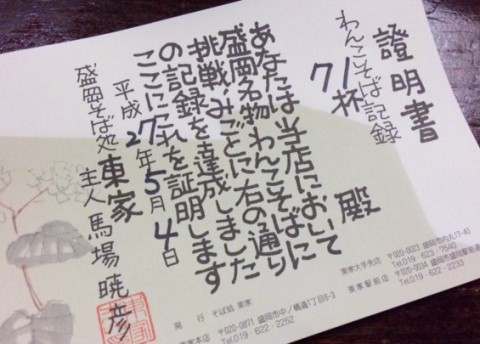 證明書
わんこそば記録
71杯
殿
あなたは当店において
盛岡名物わんこそばに
挑戦、みごとに右の通り
の記録を達成しました
ここにこれを証明します
平成27年5月4日
盛岡そば処 東家
主人 馬場暁彦
発行 そば処 東家
東家本店 〒020-0871 盛岡市中ノ橋通1丁目8-3
Tel.019-622-2252
東家大手先店 〒020-0023 盛岡市内丸17-40
Tel.019-623-7540
東家駅前店 〒020-0034 盛岡市盛岡駅前通
Tel.019-622-2233